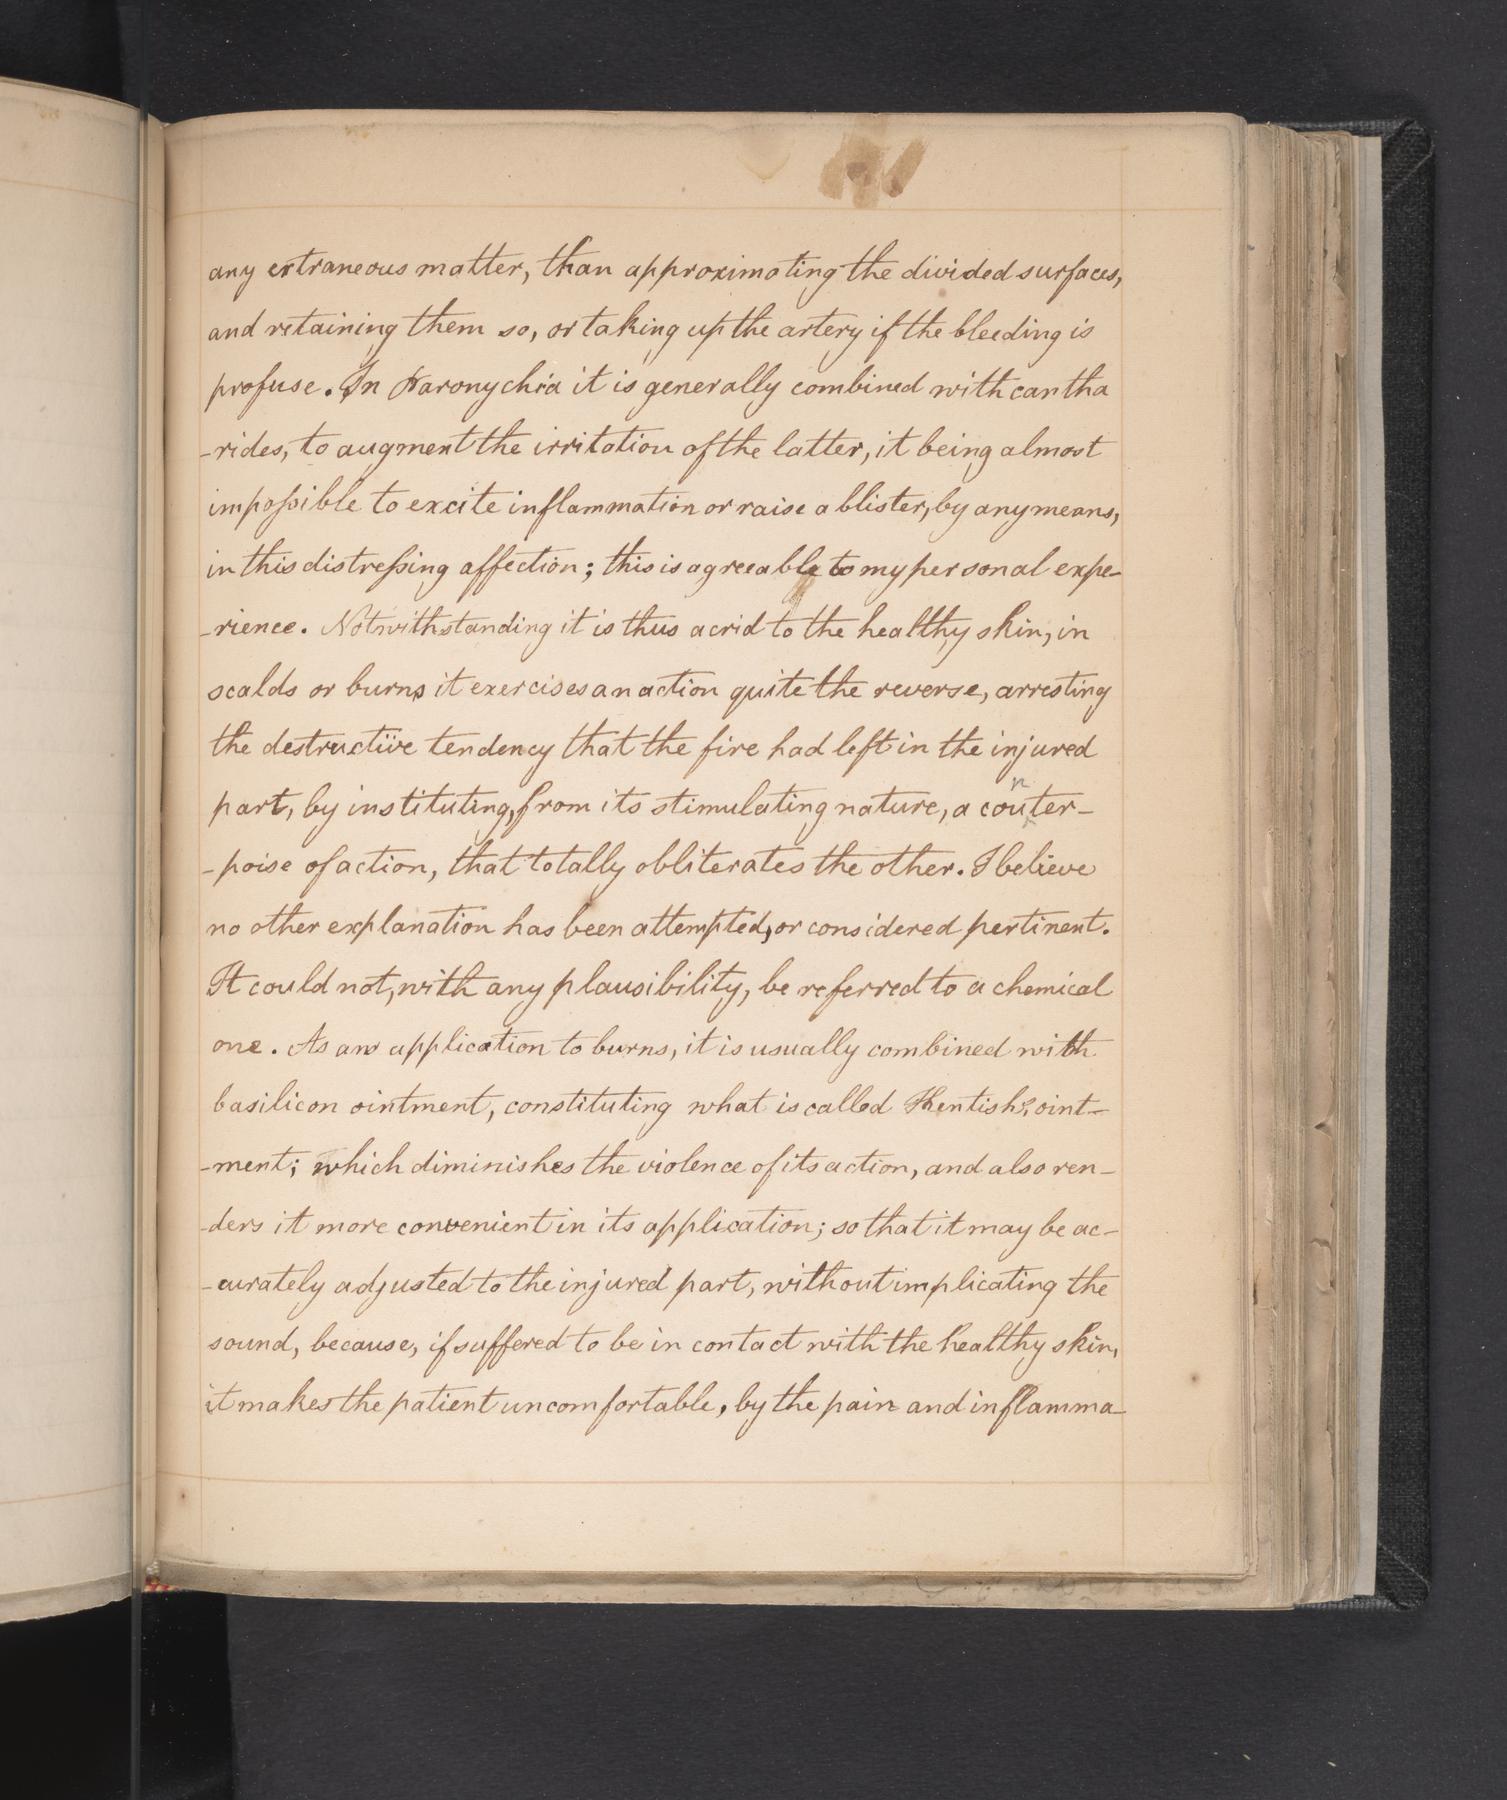 any extraneous matter, than approximating the divided surfaces,
and retaining them so, or taking up the artery if the bleeding is
profuse. In Paronychia it is generally combined with cantha
-rides, to augment the irritation of the latter, it being almost
impossible to excite inflammation or raise a blister, by any means,
in this distressing affection; this is agreeable to my personal expe-
-rience. Notwithstanding it is thus acrid to the healthy skin, in
scalds or burns it exercises an action quite the reverse, arresting
the destructive tendency that the fire had left in the injured
part, by instituting, from its stimulating nature, a counter-
-poise of action, that totally obliterates the other. I believe
no other explanation has been attempted, or considered pertinent.
It could not, with any plausibility, be referred to a chemical
one. As an application to burns, it is usually combined with
basilicon ointment, constituting what is called Kentish's oint-
-ment; which diminishes the violence of its action, and also ren-
-ders it more convenient in its application; so that it may be ac-
-curately adjusted to the injured part, without implicating the
sound, because, if suffered to be in contact with the healthy skin,
it makes the patient uncomfortable, by the pain and inflamma-